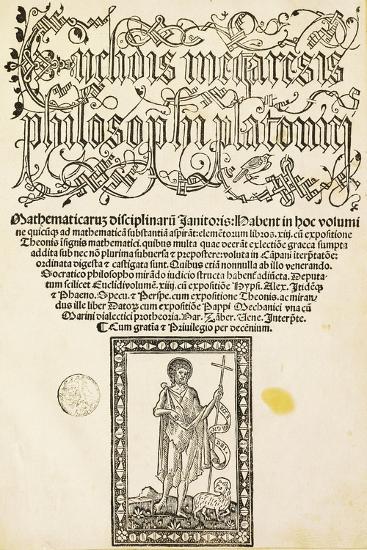 Euclidis megarensis
philosophi platonicj
Mathematicaruʒ disciplinarū Janitoris: Habent in hoc volumi
ne quicūqʒ ad mathematicā substantiā aspirāt: elemētorum libros .xiij. cū expositione
Theonis insignis mathematici. quibus multa quae deerāt ex lectiōe graeca sumpta
addita sub nec nō plurima subuersa & prepostere: voluta in Cāpani iterpʳtatōe:
ordinata digesta & castigata sunt. Quibus etiā nonnulla ab illo venerando
Socratico philosopho mirādo iudicio structa habent' adiūcta. Deputa-
tum scilicet Euclidi volumē .xiiij. cū expositiōe Hypsi. Alex. Itidēqʒ
& Phaeno. Specu. & Perspe. cum expositione Theonis. ac miran/
dus ille liber Datorʒ cum expositiōe Pappi Mechanici vna cū
Marini dialectici protheoria. Bar. Zāber. Vene. Interpʳte.
¶ Cum gratia & Priuilegio per decenium.